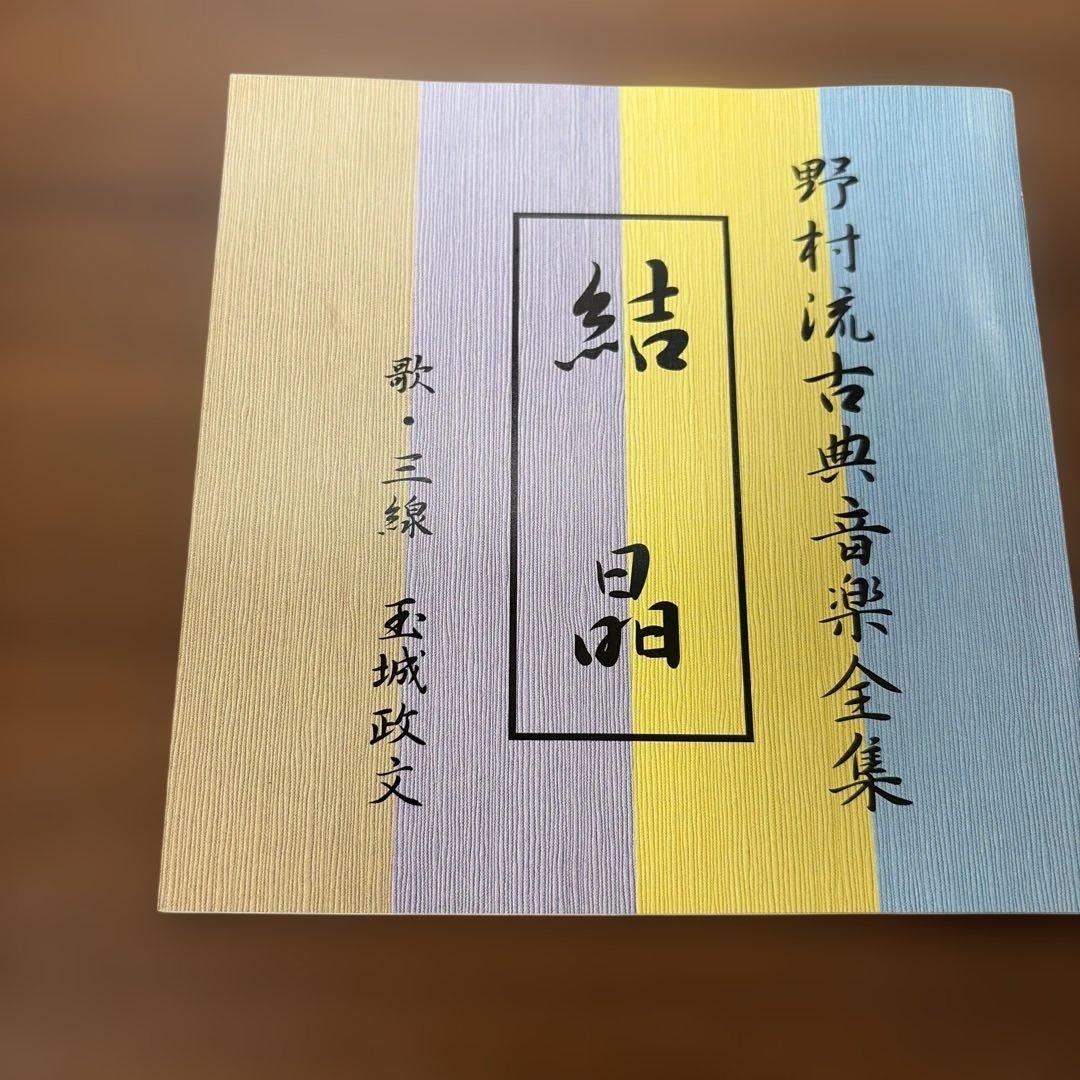 野村流古典音楽全集
結晶
歌・三線 玉城政文